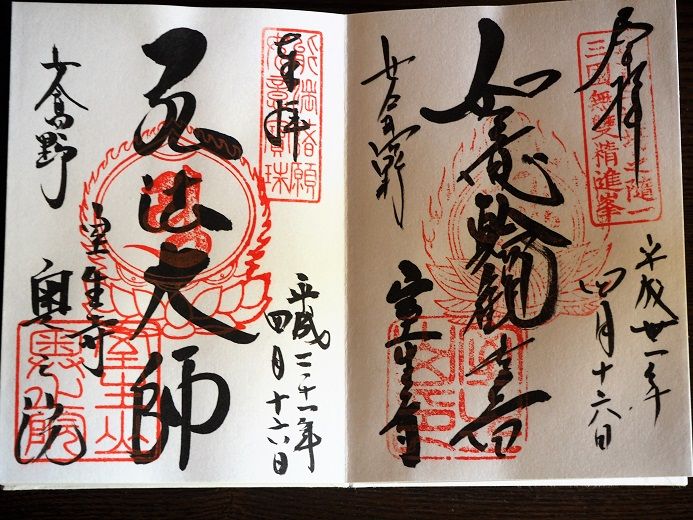 奉拝
平成廿一年
四月十六日
三國無雙精進峯
如意輪観音
女人高野
室生寺
奉拝
平成二十一年
四月十六日
能満諸願
如意寶珠
弘法大師
女人高野
室生寺
奥之院